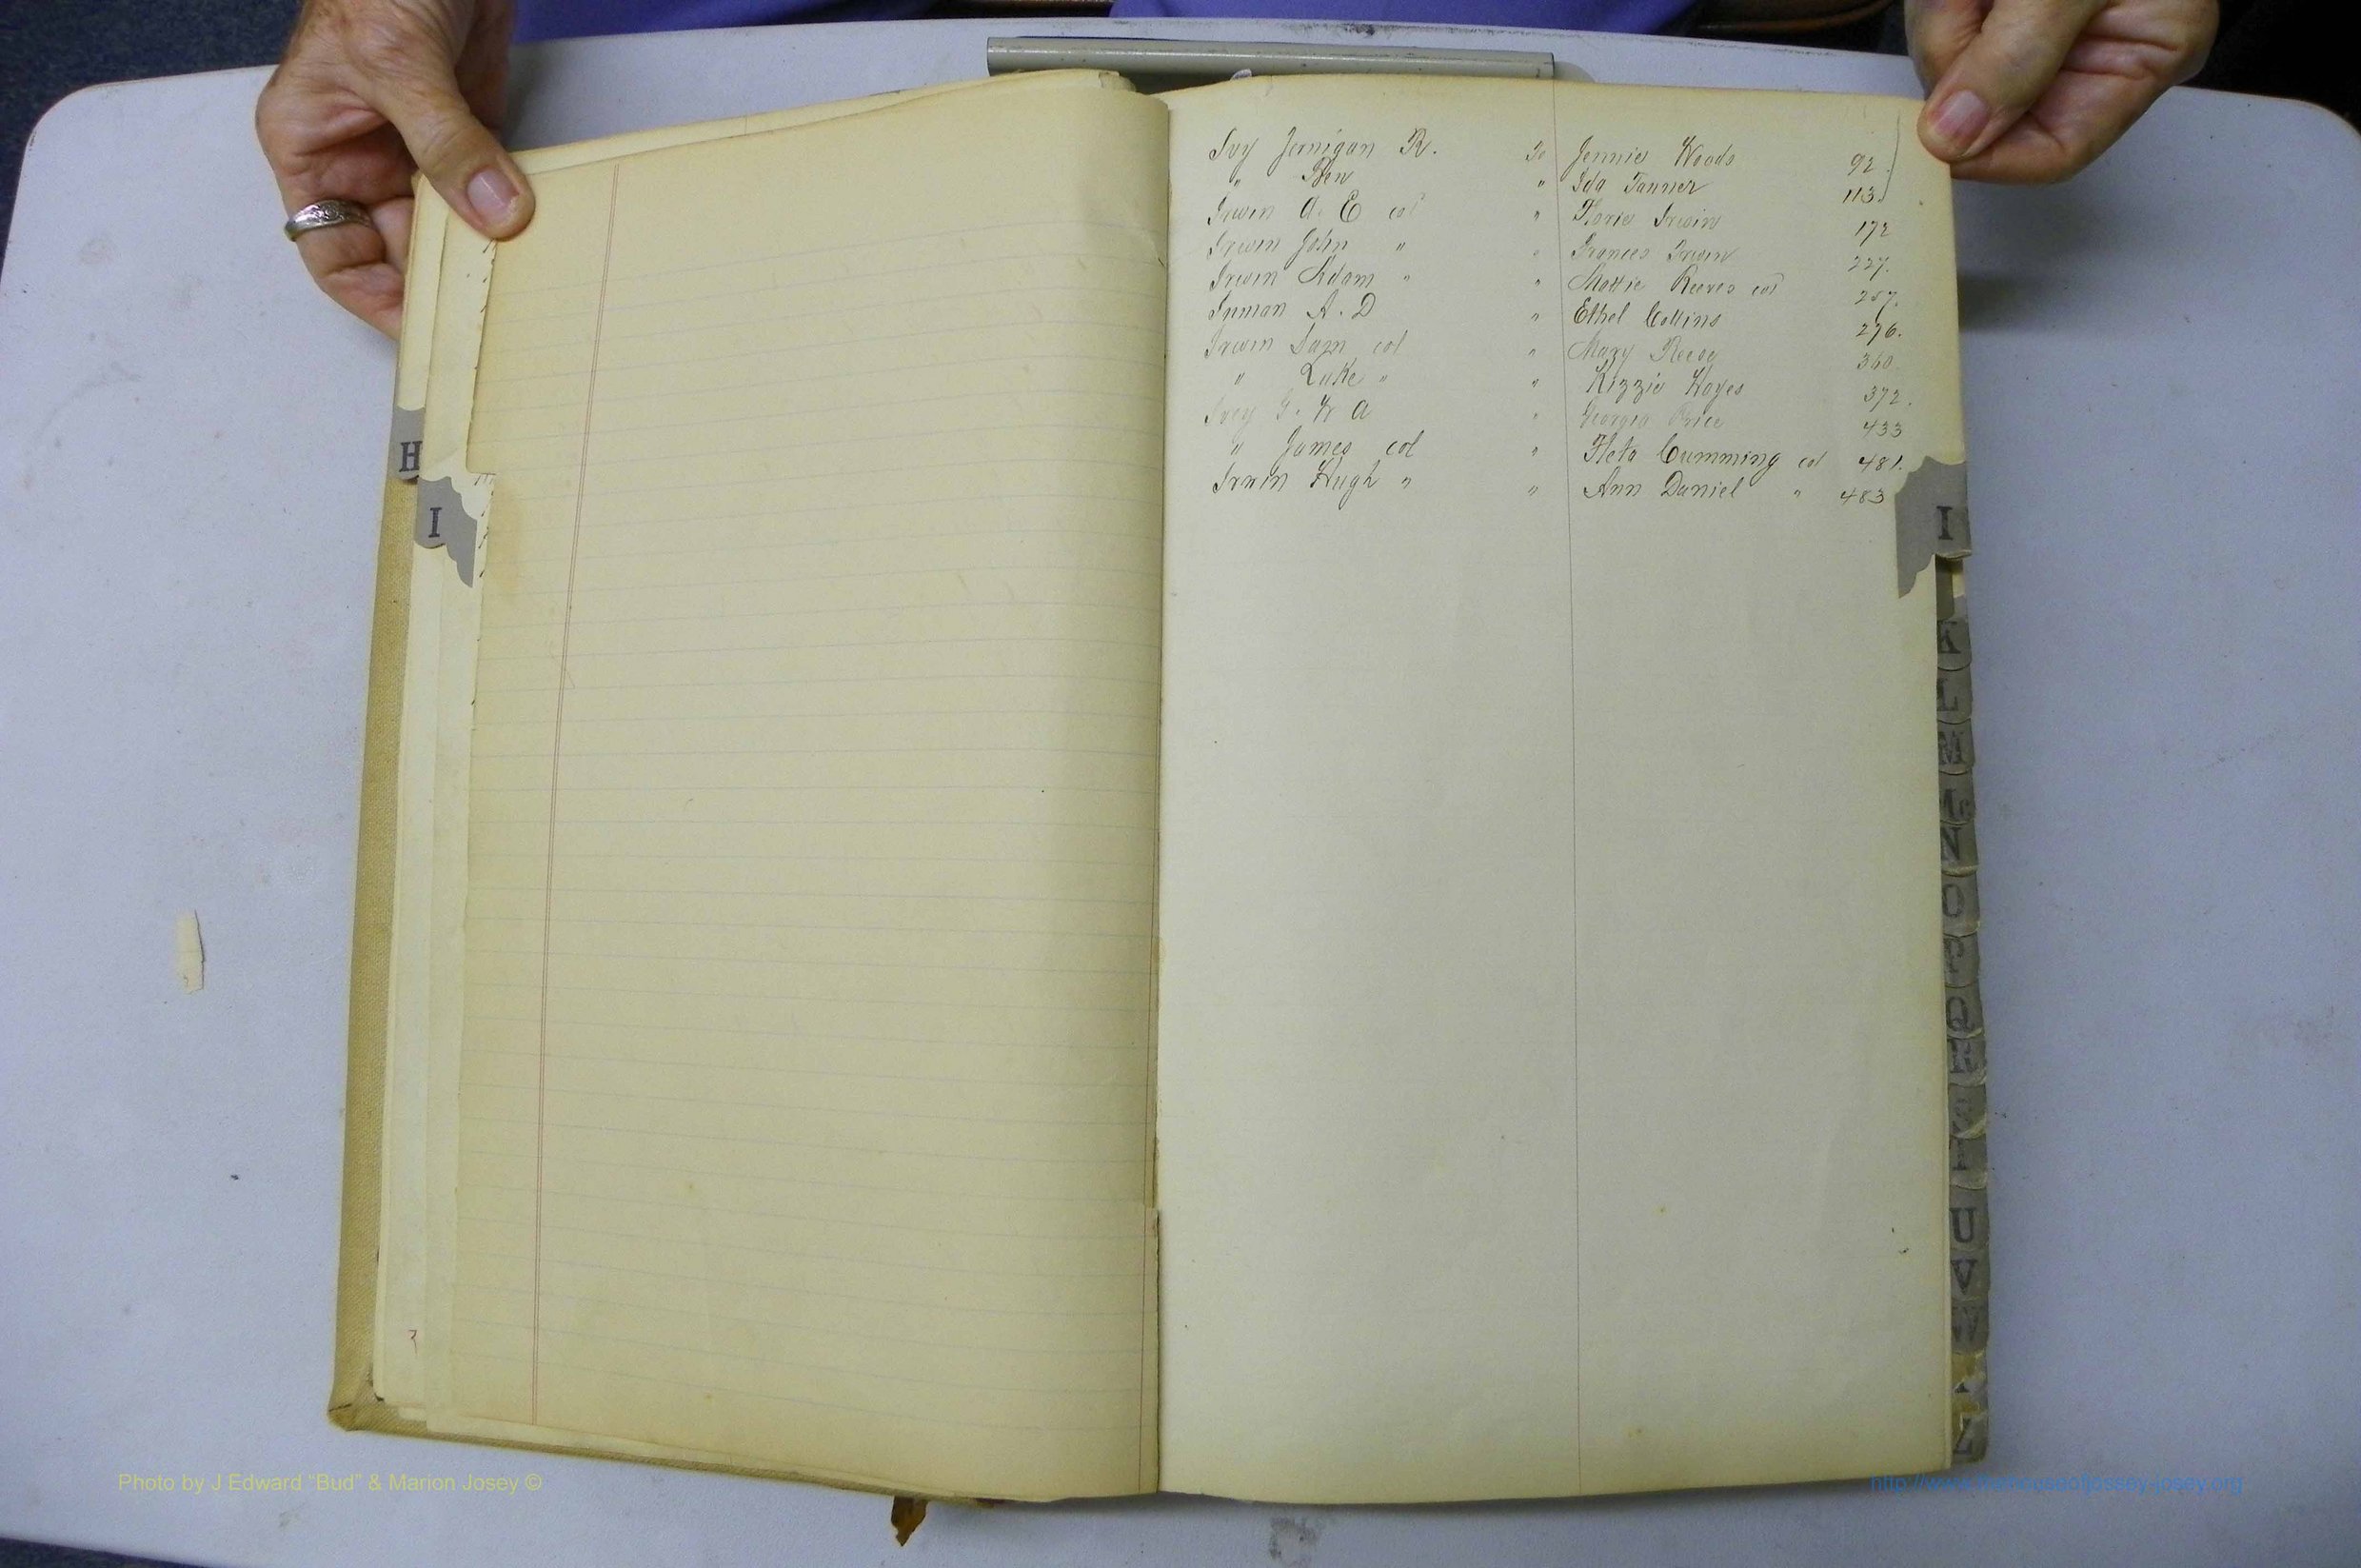 Ivy Jernigan R. To Jennie Woods 92
" Ben " Ida Tanner 113
Irwin A. E col " Irwin 172
Irwin John " " Frances Irwin 227.
Irwin Adam " " Mattie Reeves col 257.
Inman A. D " Ethel Collins 276.
Irwin Sam col " Mary 360
" Luke " " Kizzie Hayes 372.
Ivey G. W A " Georgia Price 433
" James col " Fleta Cumming col 481.
Irwin Hugh " " Ann Daniel " 483
H
I
I
K
L
M
N
O
P
Q
R
U
V
W
Z
Photo by J Edward "Bud" & Marion Josey ©